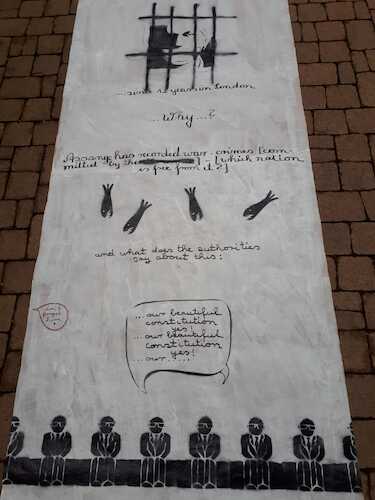 ...since 12 years in London
...Why...?
Assange has recorded war crimes [com
mitted by the ] - [which nation
is free from it?]
and what does the authorities
say about this:
...our beautiful
constitution
yes!
...our beautiful
constitution
yes!
...our.....!